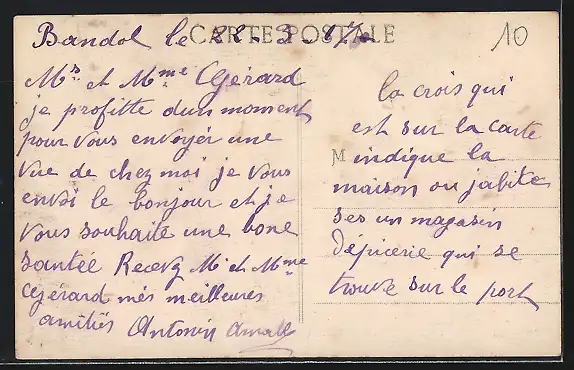 CARTE POSTALE
10
Bandol le 22 - 3 - 17
Mr et Mme Gérard
je profitte dun moment
pour vous envoyér une
vue de chez moi je vous
envoi le bonjour et je
vous souhaite une bone
santée Recevez Mr et Mme
Gérard més meilleures
amitiés Antonin
la crois qui
est sur la carte
M
indique la
maison ou jabite
ses un magasin
dépicerie qui se
trouve sur le port